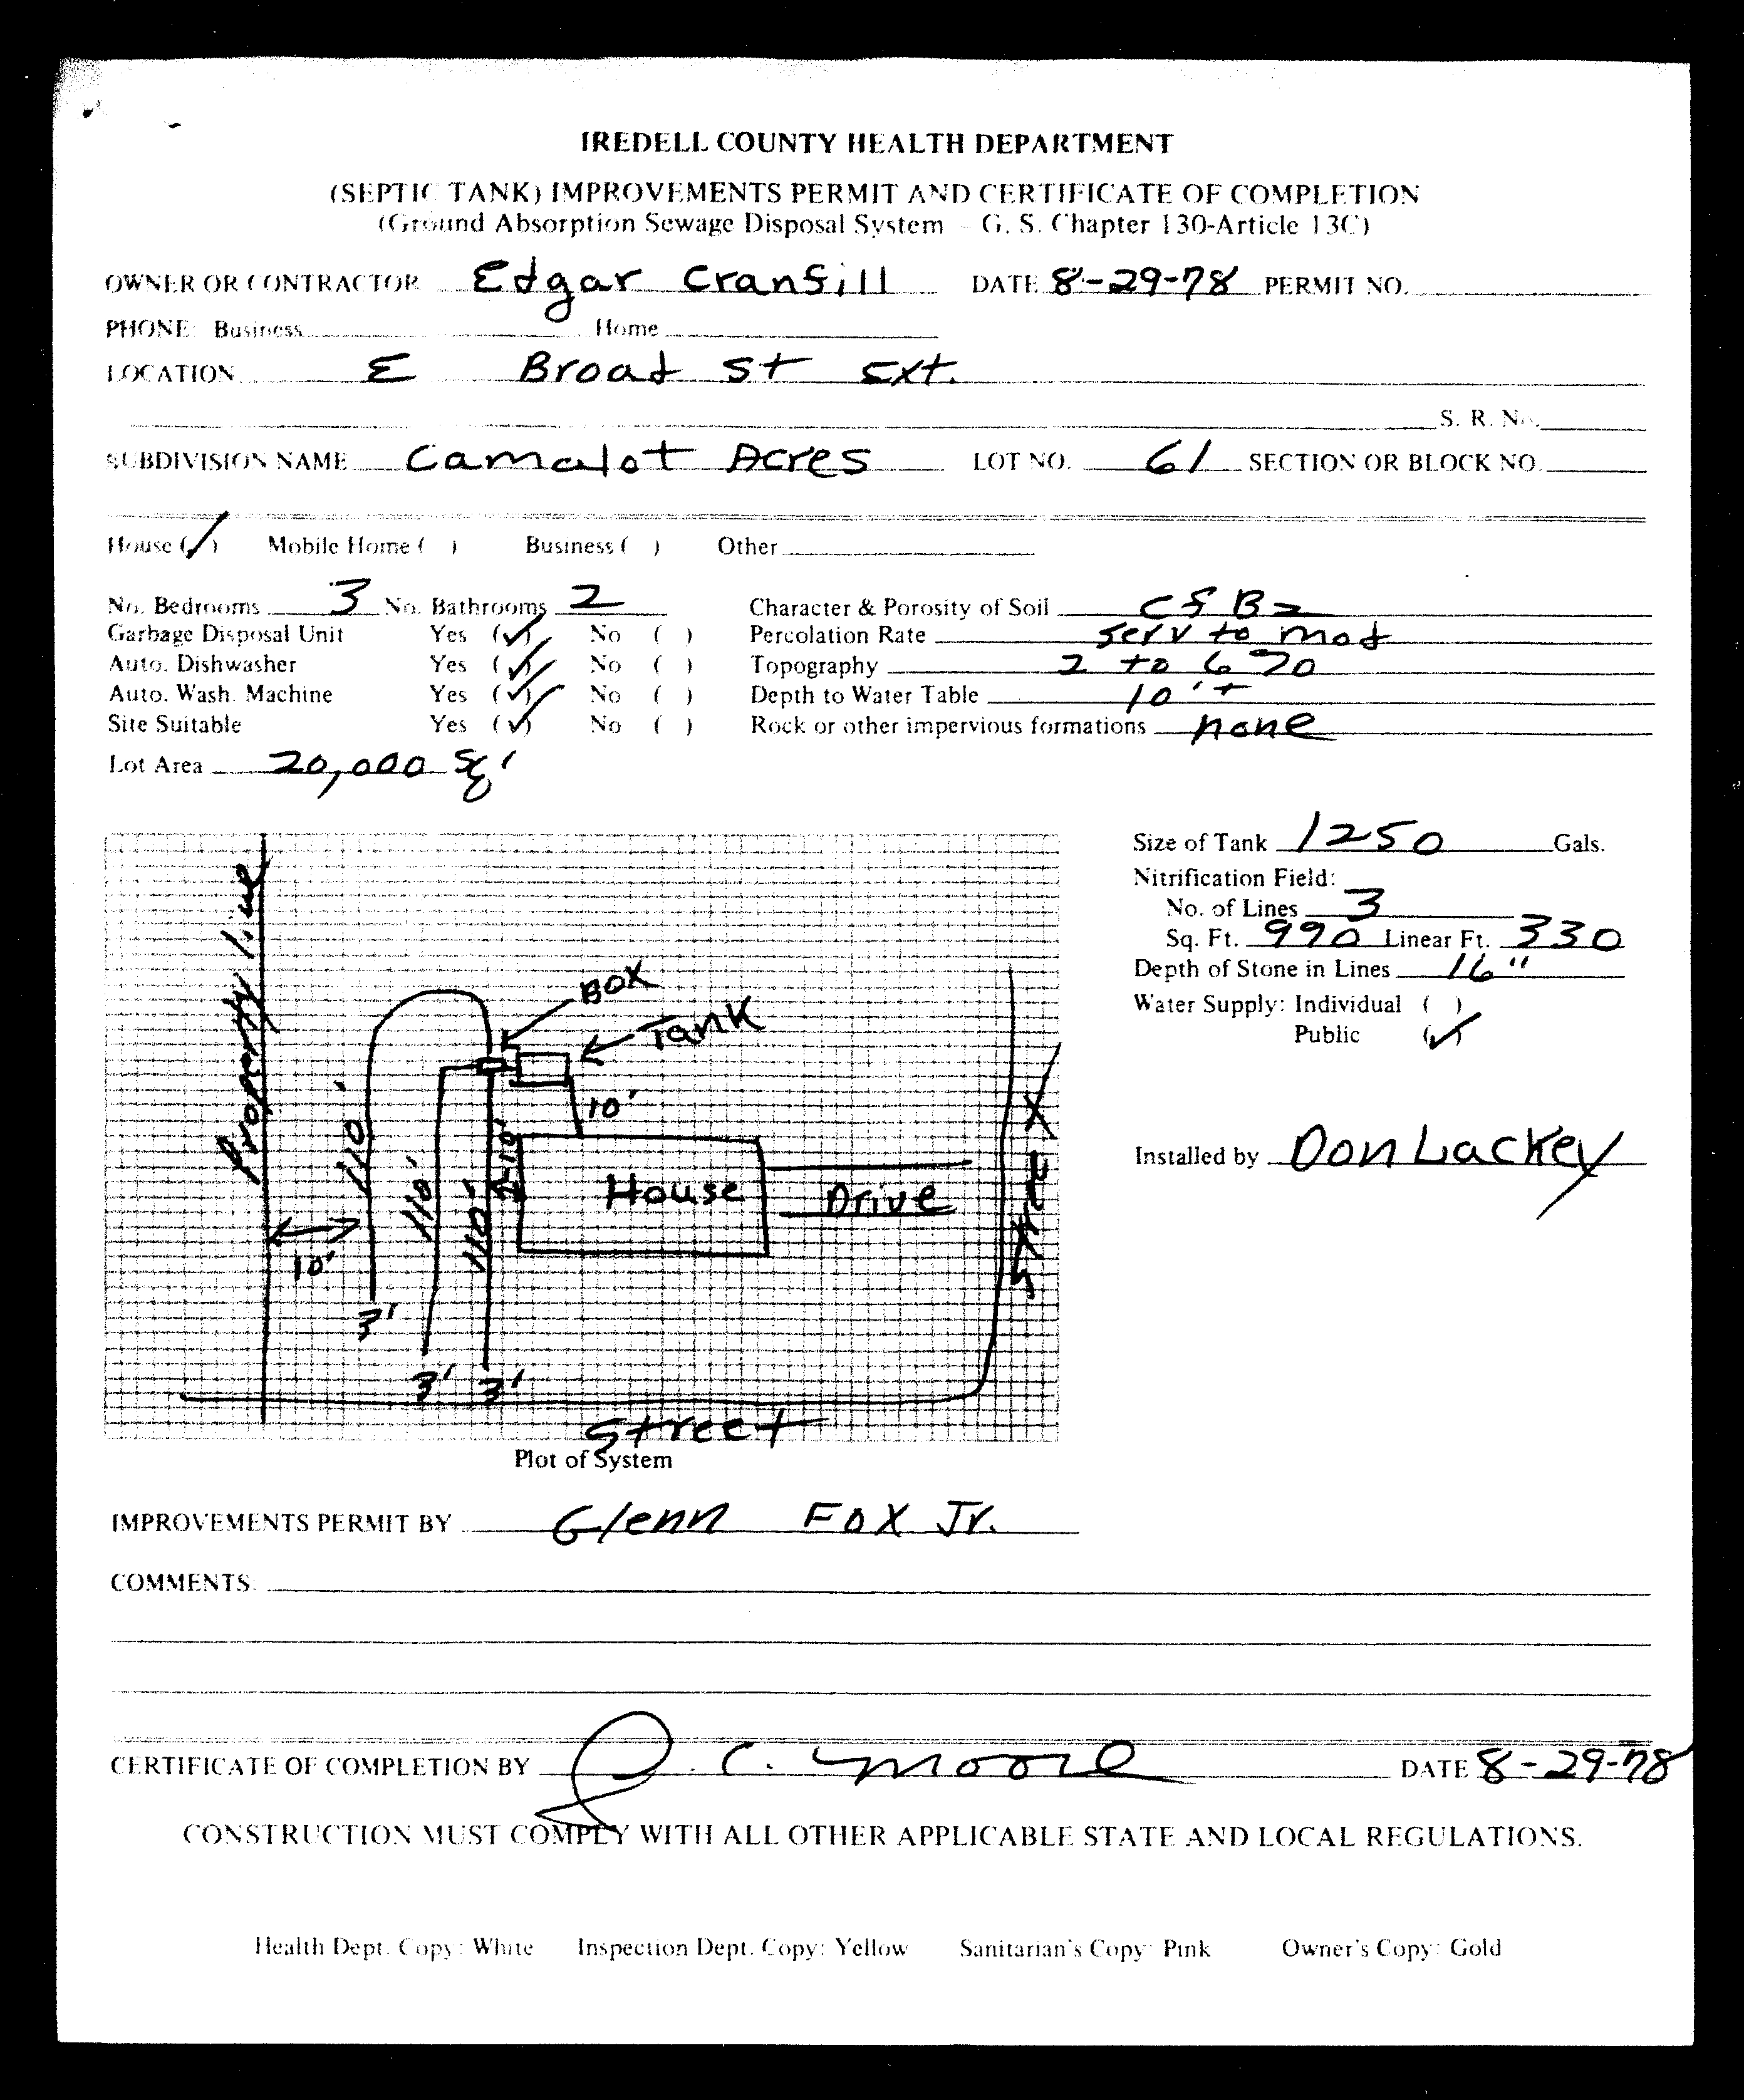 IREDELL COUNTY HEALTH DEPARTMENT
(SEPTIC TANK) IMPROVEMENTS PERMIT AND CERTIFICATE OF COMPLETION
(Ground Absorption Sewage Disposal System - G. S. Chapter 130-Article 13C)
OWNER OR CONTRACTOR Edgar Cransill DATE 8-29-78 PERMIT NO.
PHONE: Business Home
LOCATION E Broad St Ext.
S. R. No.
SUBDIVISION NAME Camalot Acres LOT NO. 61 SECTION OR BLOCK NO.
House (✓) Mobile Home ( ) Business ( ) Other
No. Bedrooms 3 No. Bathrooms 2 Character & Porosity of Soil
Garbage Disposal Unit Yes (✓) No ( ) Percolation Rate serv to mod
Auto. Dishwasher Yes (✓) No ( ) Topography 2 to 6 %
Auto. Wash. Machine Yes (✓) No ( ) Depth to Water Table 10'+
Site Suitable Yes (✓) No ( ) Rock or other impervious formations none
Lot Area 20,000 Sq'
Size of Tank 1250 Gals.
Nitrification Field:
No. of Lines 3
Sq. Ft. 990 Linear Ft. 330
Depth of Stone in Lines 16"
Water Supply: Individual ( )
Public (✓)
Installed by Don Lackey
Property line
BOX
Tank
10'
110'
110'
110'
10'
House
Drive
Street
10'
3'
3' 3'
Street
Plot of System
IMPROVEMENTS PERMIT BY Glenn Fox Jr.
COMMENTS:
CERTIFICATE OF COMPLETION BY J. C. Moore DATE 8-29-78
CONSTRUCTION MUST COMPLY WITH ALL OTHER APPLICABLE STATE AND LOCAL REGULATIONS.
Health Dept. Copy: White Inspection Dept. Copy: Yellow Sanitarian's Copy: Pink Owner's Copy: Gold